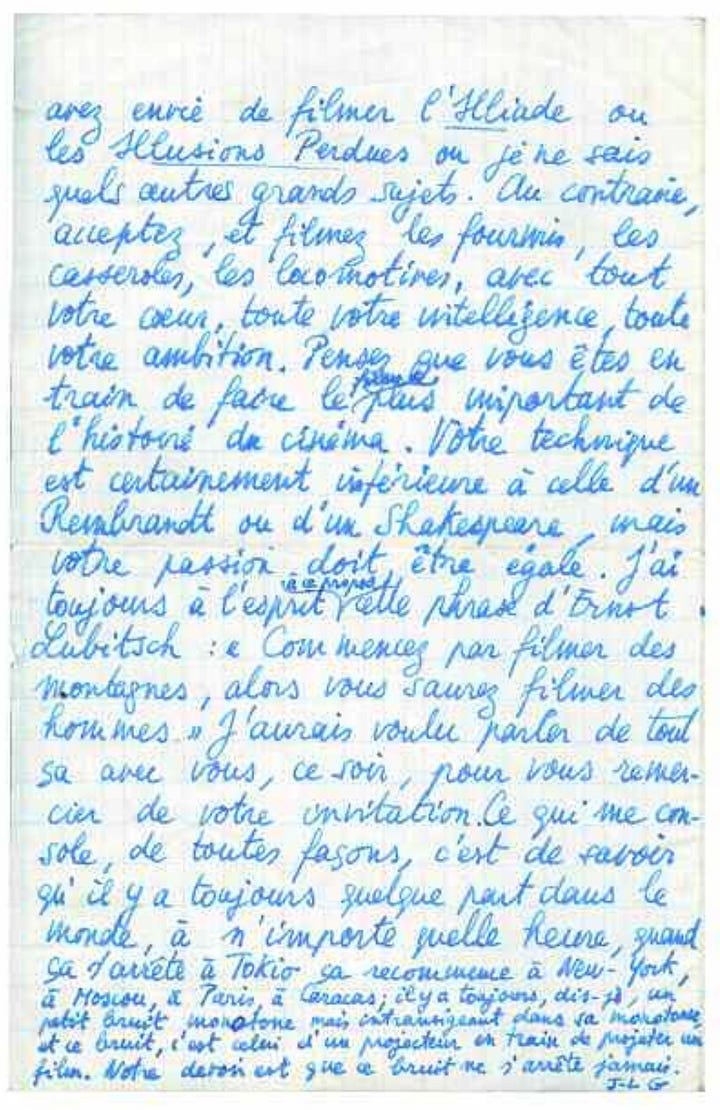 avez envie de filmer l'Illiade ou
les Illusions Perdues ou je ne sais
quels autres grands sujets. Au contraire,
acceptez, et filmez les fourmis, les
casseroles, les locomotives, avec tout
votre cœur, toute votre intelligence, toute
votre ambition. Pensez que vous êtes en
train de faire le film le plus important de
l'histoire du cinéma. Votre technique
est certainement inférieure à celle d'un
Rembrandt ou d'un Shakespeare, mais
votre passion doit être égale. J'ai
toujours à l'esprit à ce propos cette phrase d'Ernst
Lubitsch : « Commencez par filmer des
montagnes, alors vous saurez filmer des
hommes. » J'aurais voulu parler de tout
ça avec vous, ce soir, pour vous remer-
cier de votre invitation. Ce qui me con-
sole, de toutes façons, c'est de savoir
qu'il y a toujours quelque part dans le
monde, à n'importe quelle heure, quand
ça s'arrête à Tokio ça recommence à New-York,
à Moscou, à Paris, à Caracas; il y a toujours, dis-je, un
petit bruit monotone mais intransigeant dans sa monotonie,
et ce bruit, c'est celui d'un projecteur en train de projeter un
film. Notre devoir est que ce bruit ne s'arrête jamais.
J-L G